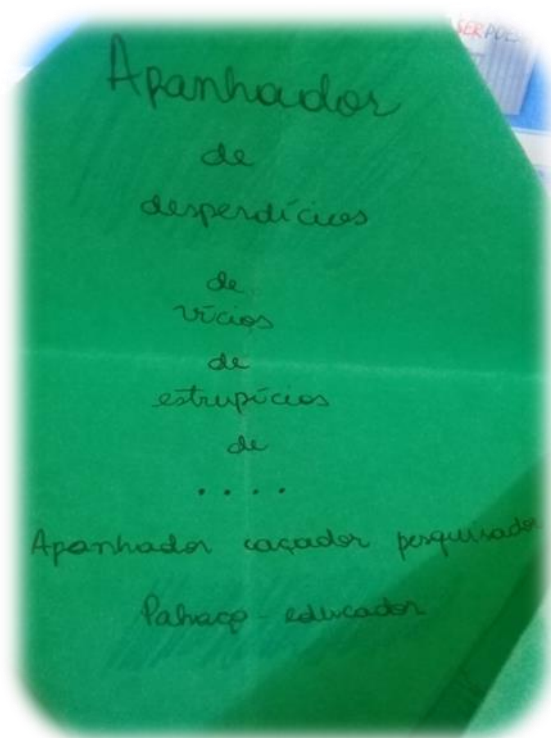 SERPDE
Apanhador
de
desperdícios
de
vícios
de
estrupícios
de
....
Apanhador caçador pesquisador
Palhaço - educador